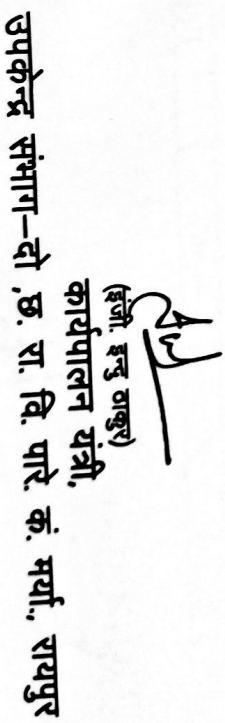 (इंजी. इन्दु ठाकुर)
कार्यपालन यंत्री,
उपकेन्द्र संभाग–दो ,छ. रा. वि. पारे. कं. मर्या., रायपुर